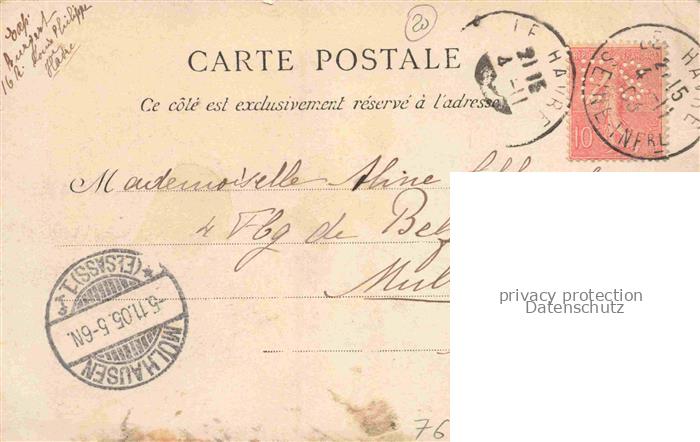 Exp:
Burgert
16 R. Louis Philippe
Havre
20
CARTE POSTALE
Ce côté est exclusivement réservé à l'adresse
LE HAVRE
21 15
4 -11
LE HAVRE
21 15
4 -11
05
SEINE INFRE
10
Mademoiselle Aline
4 Fbg de Bel
Mul
MÜLHAUSEN
5.11.05. 5-6N.
*(ELSASS)1.
privacy protection
Datenschutz
76